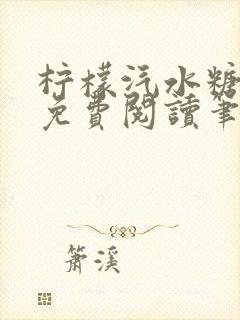 柠檬汽水糖
免費閱讀筆
萧溪